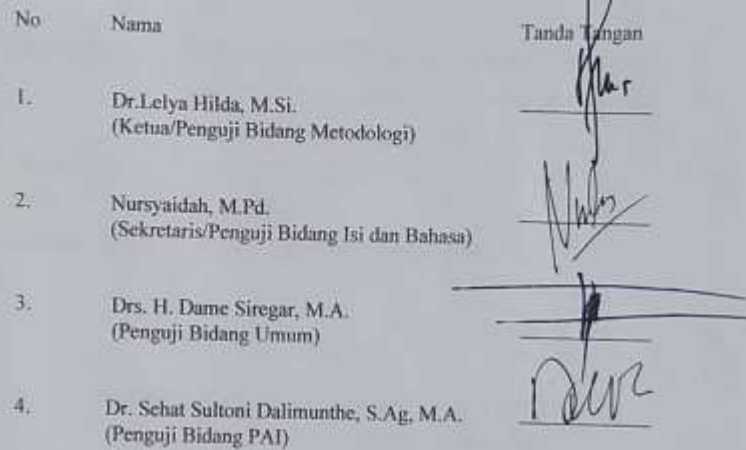 No Nama Tanda Tangan
1. Dr.Lelya Hilda, M.Si.
(Ketua/Penguji Bidang Metodologi)
2. Nursyaidah, M.Pd.
(Sekretaris/Penguji Bidang Isi dan Bahasa)
3. Drs. H. Dame Siregar, M.A.
(Penguji Bidang Umum)
4. Dr. Sehat Sultoni Dalimunthe, S.Ag, M.A.
(Penguji Bidang PAI)